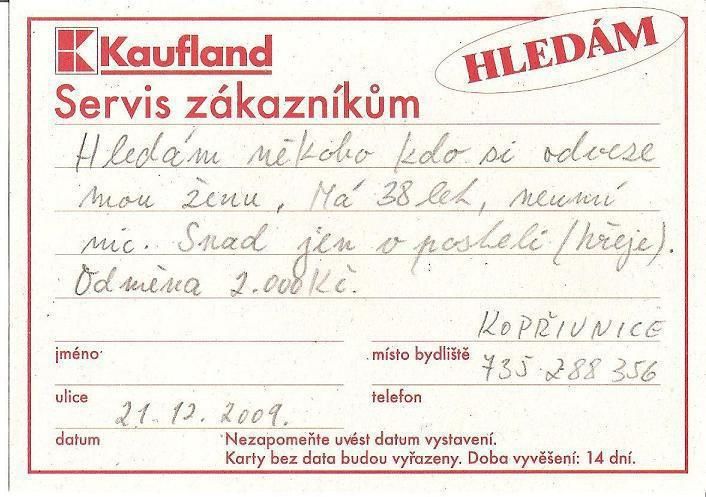 Kaufland
HLEDÁM
Servis zákazníkům
Hledám někoho kdo si odveze
mou ženu, Má 38 let, neumí
nic. Snad jen v posteli (hřeje).
Odměna 2.000 Kč.
KOPŘIVNICE
jméno
místo bydliště
735 288 356
ulice
telefon
21.12.2009.
datum
Nezapomeňte uvést datum vystavení.
Karty bez data budou vyřazeny. Doba vyvěšení: 14 dní.